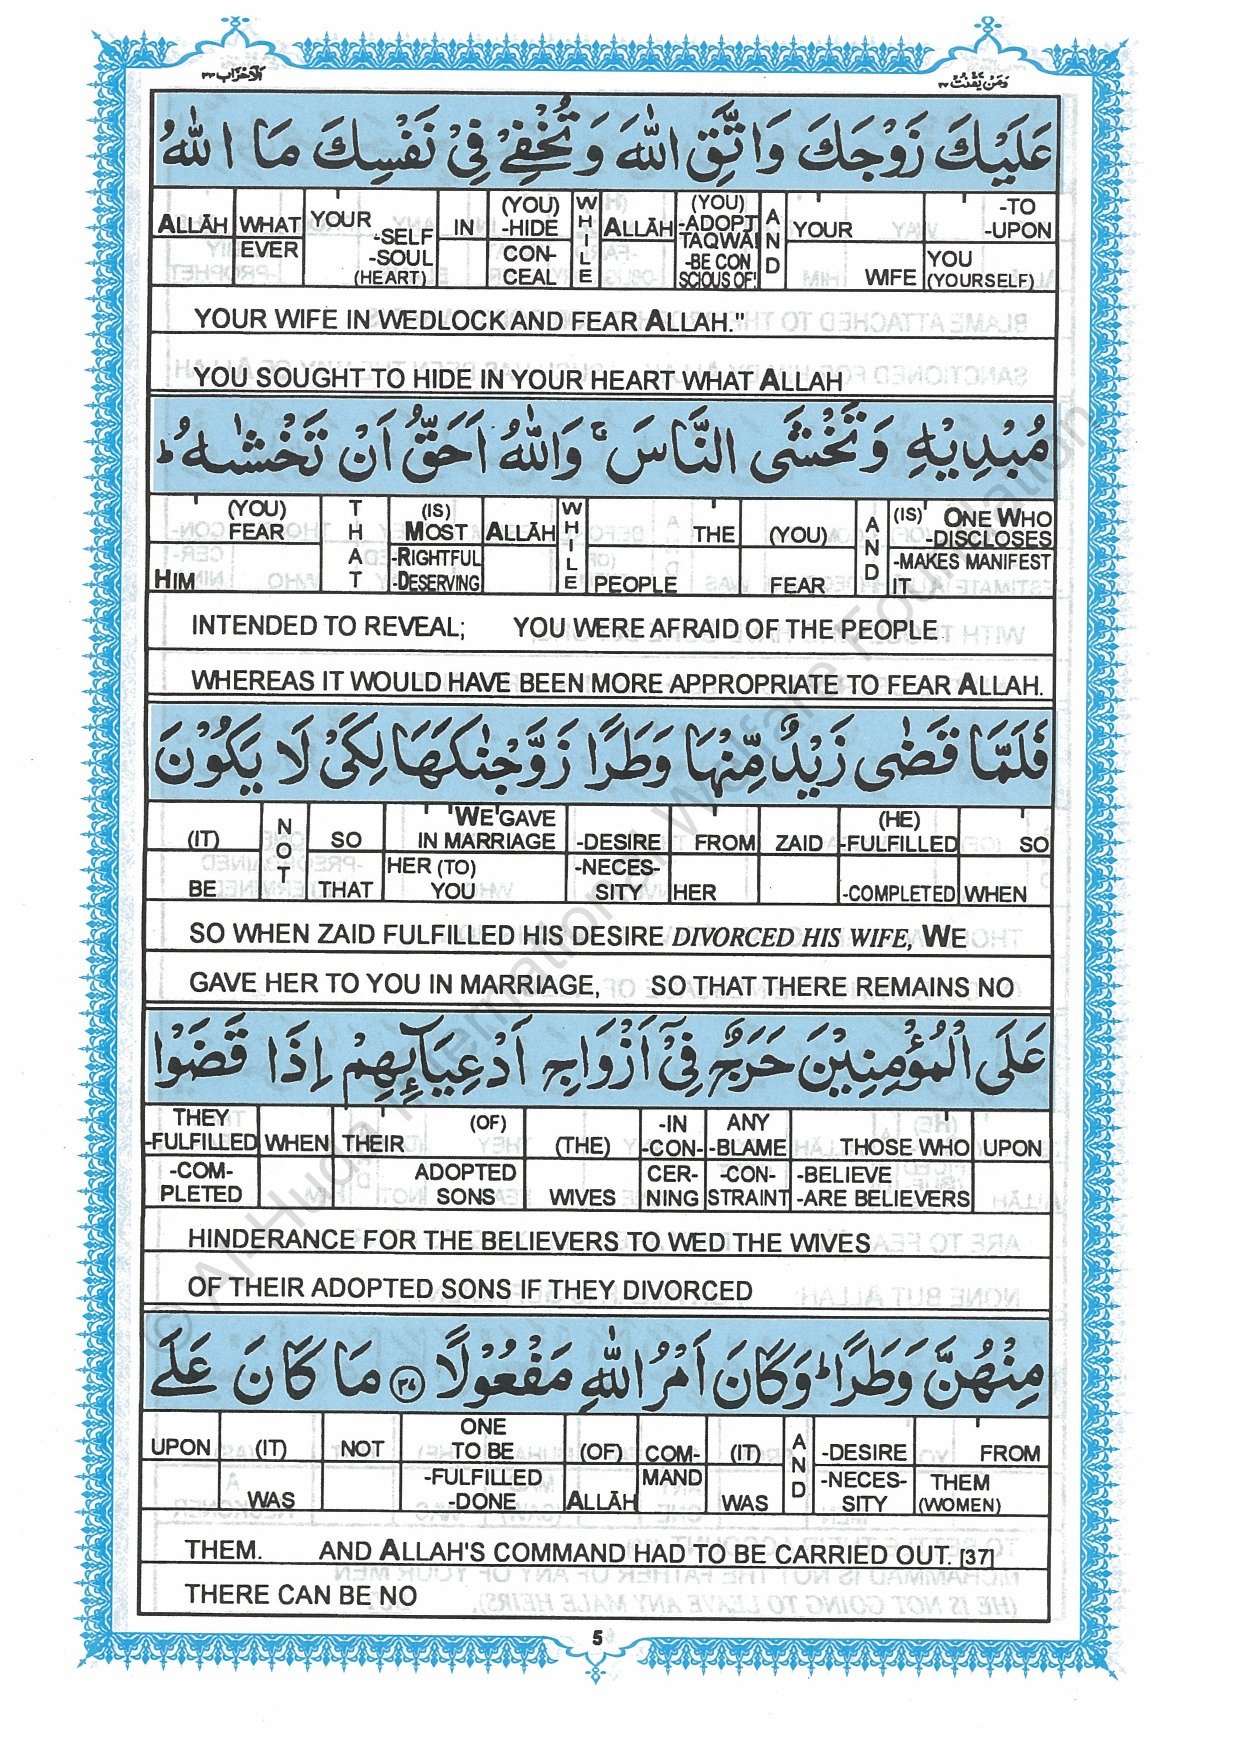 وَمَنْ يَّقْنُتْ ٢٢
اَلْاَحْزَاب ٣٣
عَلَيْكَ زَوْجَكَ وَاتَّقِ اللّٰهَ وَتُخْفِيْ فِيْ نَفْسِكَ مَا اللّٰهُ
ALLĀH WHAT YOUR IN (YOU) WHILE ALLĀH (YOU) AND YOUR -TO
EVER -SELF -HIDE -ADOPT -UPON
-SOUL CON- TAQWA! WIFE YOU
(HEART) CEAL -BE CON SCIOUS OF! (YOURSELF)
YOUR WIFE IN WEDLOCK AND FEAR ALLAH."
YOU SOUGHT TO HIDE IN YOUR HEART WHAT ALLAH
مُبْدِيْهِ وَتَخْشَى النَّاسَ ۚ وَاللّٰهُ اَحَقُّ اَنْ تَخْشٰىهُ ؕ
(YOU) THAT (IS) ALLĀH WHILE THE (YOU) AND (IS) ONE WHO
FEAR MOST -DISCLOSES
HIM -RIGHTFUL PEOPLE FEAR -MAKES MANIFEST
-DESERVING IT
INTENDED TO REVEAL; YOU WERE AFRAID OF THE PEOPLE
WHEREAS IT WOULD HAVE BEEN MORE APPROPRIATE TO FEAR ALLAH.
فَلَمَّا قَضٰى زَيْدٌ مِّنْهَا وَطَرًا زَوَّجْنٰكَهَا لِكَيْ لَا يَكُوْنَ
(IT) NOT SO WE GAVE -DESIRE FROM ZAID (HE) SO
IN MARRIAGE -FULFILLED
BE THAT HER (TO) -NECES- HER -COMPLETED WHEN
YOU SITY
SO WHEN ZAID FULFILLED HIS DESIRE DIVORCED HIS WIFE, WE
GAVE HER TO YOU IN MARRIAGE, SO THAT THERE REMAINS NO
عَلَى الْمُؤْمِنِيْنَ حَرَجٌ فِيْٓ اَزْوَاجِ اَدْعِيَآئِهِمْ اِذَا قَضَوْا
THEY WHEN THEIR (OF) (THE) -IN ANY THOSE WHO UPON
-FULFILLED -CON- -BLAME
-COM- ADOPTED WIVES CER- -CON- -BELIEVE
PLETED SONS NING STRAINT -ARE BELIEVERS
HINDERANCE FOR THE BELIEVERS TO WED THE WIVES
OF THEIR ADOPTED SONS IF THEY DIVORCED
مِنْهُنَّ وَطَرًا ؕ وَكَانَ اَمْرُ اللّٰهِ مَفْعُوْلًا ﴿٣٧﴾ مَا كَانَ عَلَى
UPON (IT) NOT ONE (OF) COM- (IT) AND -DESIRE FROM
TO BE
WAS -FULFILLED ALLĀH MAND WAS -NECES- THEM
-DONE SITY (WOMEN)
THEM. AND ALLAH'S COMMAND HAD TO BE CARRIED OUT. [37]
THERE CAN BE NO
5
© Al-Huda International Welfare Foundation